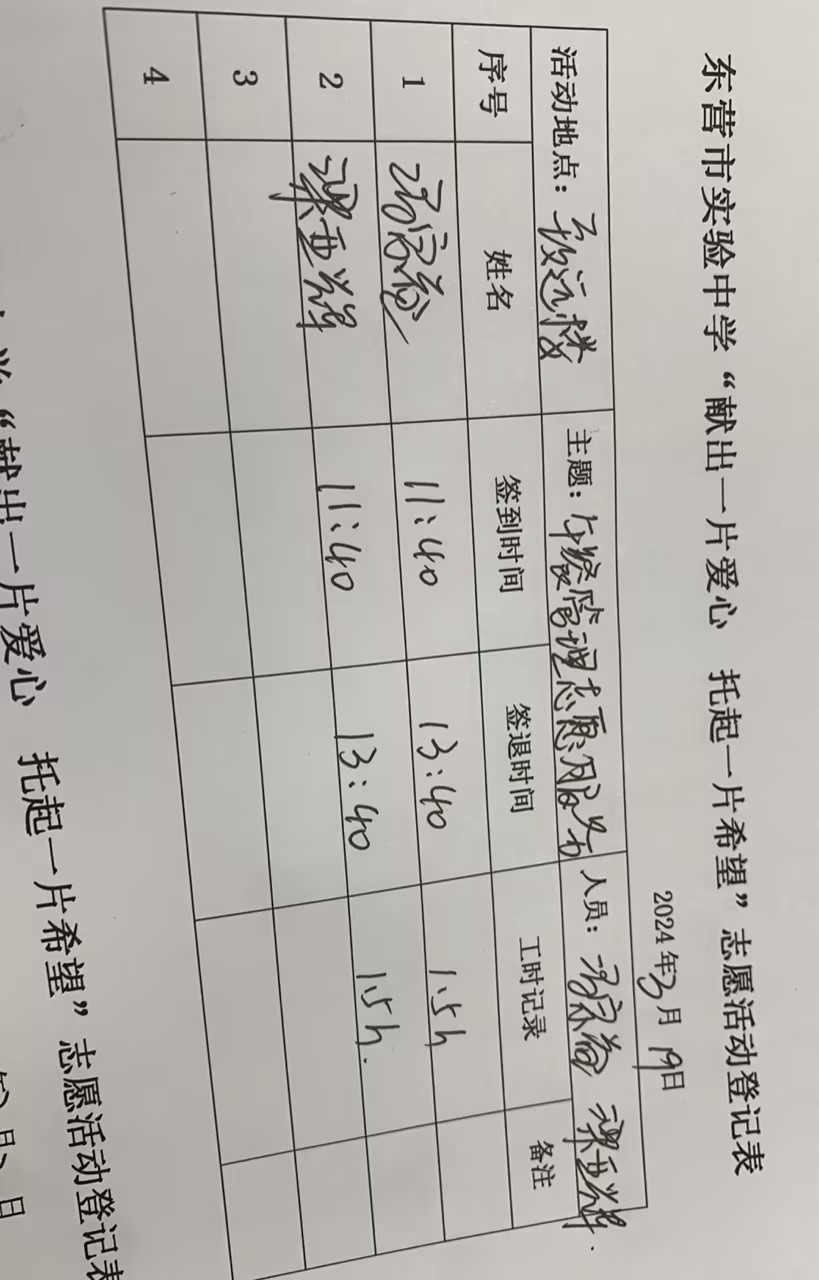 东营市实验中学“献出一片爱心 托起一片希望”志愿活动登记表
2024年3月19日
活动地点：致远楼 主题：午餐管理志愿服务 人员： 梁亚辉
序号 姓名 签到时间 签退时间 工时记录 备注
1 11:40 13:40 1.5h
2 梁亚辉 11:40 13:40 1.5h.
3
4
“献出一片爱心 托起一片希望”志愿活动登记表
月 日